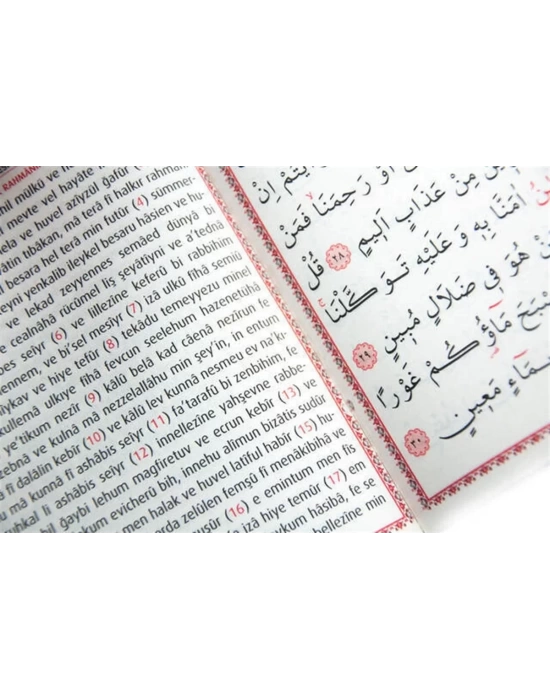 RAHMANİ
hil mülkü ve
meyte vel hayate
ve huvel azîyzül ğafûr
tıbâkan, mâ terâ fî halkır rahmân
besara hel terâ min futûr (4) sümmer-
yenkalib ileykel besaru hâsien ve hu-
ve lekad zeyyennes semâed dünyâ bi
ve cealnâhâ rücûmel liş şeyâtıyni ve a'tednâ
seîyr (6) ve lillezîne keferû bi rabbihim
ve bi'sel mesîyr (7) izâ ulkû fîhâ semiû
ve hiye tefûr (8) tekâdu temeyyezu minel
ulkıye fîhâ fevcun seelehum hazenetühâ
nezîr (9) kâlû belâ kad câenâ nezîrun fe
ve kulnâ mâ nezzelallâhu min şey'in, in entum
fî dalâlin kebîr (10) ve kâlû lev kunnâ nesmeu ev na'k-
mâ kunnâ fî ashâbis seîyr (11) fa'tarafû bi zenbihim, fe
li ashâbis seîyr (12) innellezîne yahşevne rabbe-
bil ğaybi lehum mağfiretuv ve ecrun kebîr (13) ve
evicherû bih, innehu alîmun bizâtis sudûr
men halak ve huvel latîful habîr (15) hu-
zelûlen femşû fî menâkibihâ ve
(16) e emintum men fis
izâ hiye temûr (17) em
hâsibâ, fe se
min
اِنْ
اَوْ رَحِمَنَا فَمَنْ
مِنْ عَذَابٍ اَلٖيمٍ ﴿٢٨﴾ قُلْ
اٰمَنَّا بِهٖ وَعَلَيْهِ تَوَكَّلْنَا
هُوَ فٖي ضَلَالٍ مُبٖينٍ ﴿٢٩﴾
مَاؤُ۬كُمْ غَوْرًا
مَعٖينٍ ﴿٣٠﴾